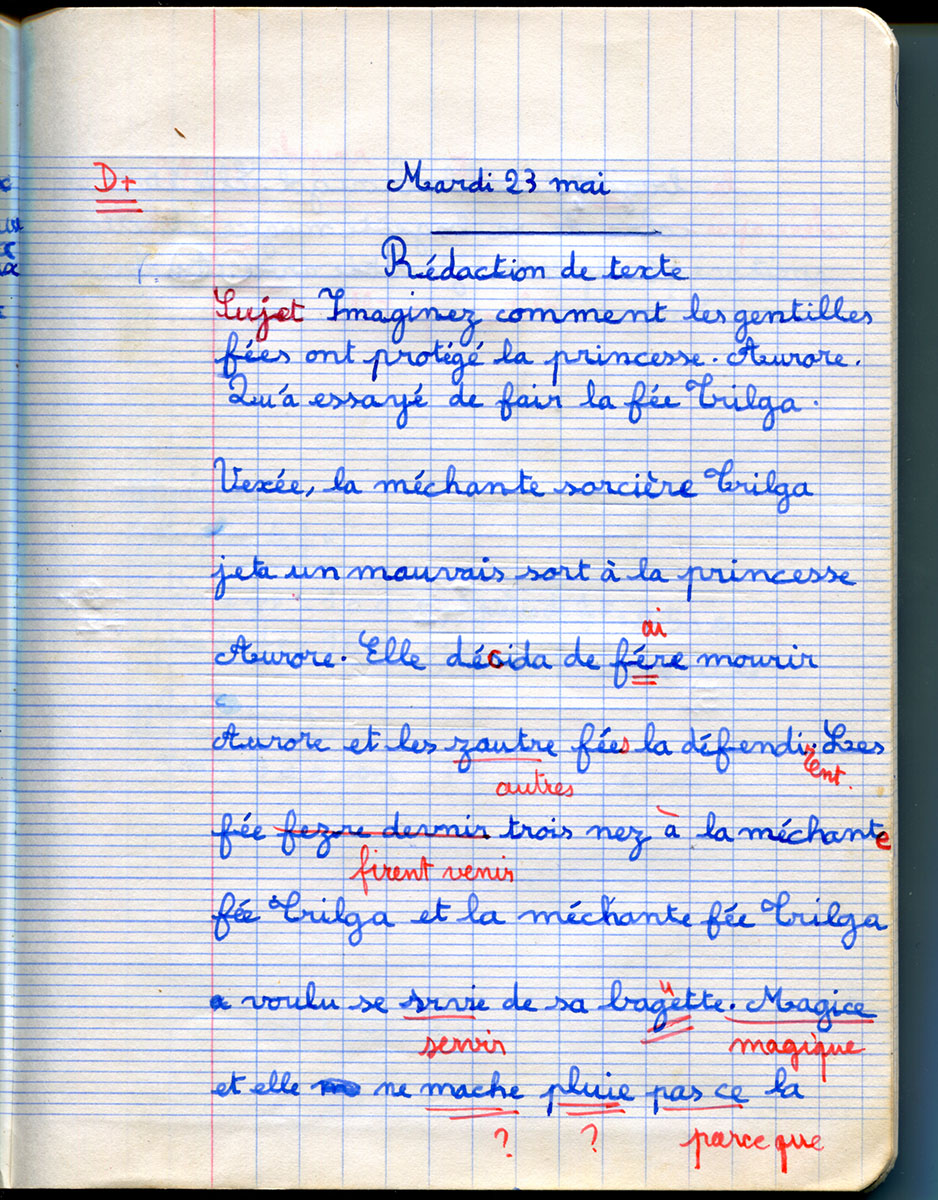 D+
Mardi 23 mai
Rédaction de texte
Sujet Imaginez comment les gentilles
fées ont protégé la princesse. Aurore.
Qu'a essayé de fair la fée Trilga.
Vexée, la méchante sorcière Trilga
jeta un mauvais sort à la princesse
ai
Aurore. Elle décida de fére mourir
Aurore et les zautre fées la défendi. Les
autres
rent.
fée fezre dermir trois nez à la méchante
firent venir
fée Trilga et la méchante fée Trilga
u
a voulu se srvie de sa bagette. Magice
servir
magique
et elle ne mache pluie pas ce la
? ? parce que